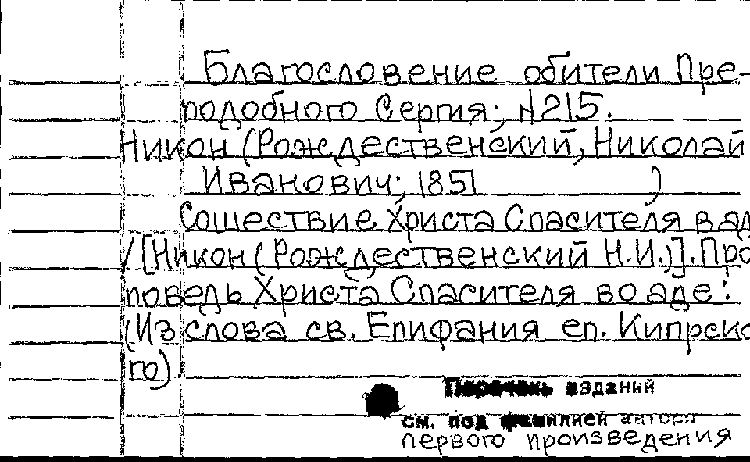 Благословение обители Пре-
подобного Сергия; N215.
Никон (Рождественский, Николай
Иванович; 1851 )
Сошествие Христа Спасителя в ад
/ [Никон (Рождественский Н.И.)]. Про
поведь Христа Спасителя во аде:
(Из слова св. Епифания еп. Кипрско
го).
Перечень изданий
см. под фамилией автора
первого произведения